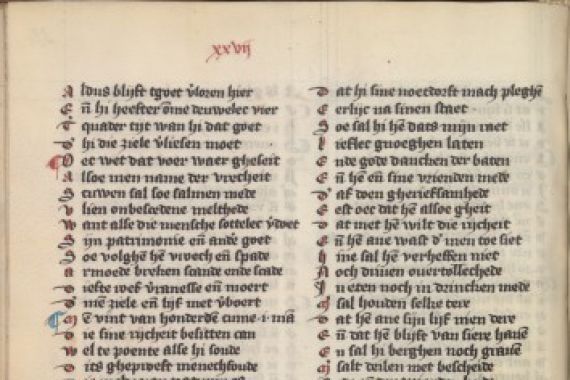 xxvij
A ldus blijft tgoet v̄loren hier
E n̄ hi heefter ōme deuwelec vier
T quader tijt wan hi dat goet
D' hi die ziele v̄liesen moet
O ec wet dat voer waer gheseit
A lsoe men name der vrecheit
S tuwen sal soe salmen mede
V lien onbescedene melthede
W ant alle die mensche sottelec v̄doet
S ijn patrimonie en̄ and' goet
S oe volghē hē vroech en̄ spade
A rmoede breken scande ende scade
D iefte roef v̄ranesse en̄ moert
D' mē ziele en̄ lijf met v̄boert
M ē vint van honderdē cume .i. mā
D ie sine rijcheit besitten can
W el te poente alse hi soude
D its gheproeft menechfoude
D at hi sine noetdorft mach pleghē
E erlijc na sinen staet
S oe sal hi hē dats mijn raet
I eflec gnoeghen laten
E nde gode dancken der baten
E n̄ hē en̄ sine vrienden mede
D' af doen gheriefsamhede
E st oec dat hē alsoe gheit
D at met hē wilt die rijcheit
E n̄ hē ane wast d' men toe siet
H ine sal hem verheffen niet
N och driuen ouertollechede
I n eten noch in drincken mede
M sal houden selke tere
D at hē ane sijn lijf men dere
E n̄ dat hē blijft van siere hauē
E n̄ sal hi berghen noch grauē
M salt deilen met bescheide